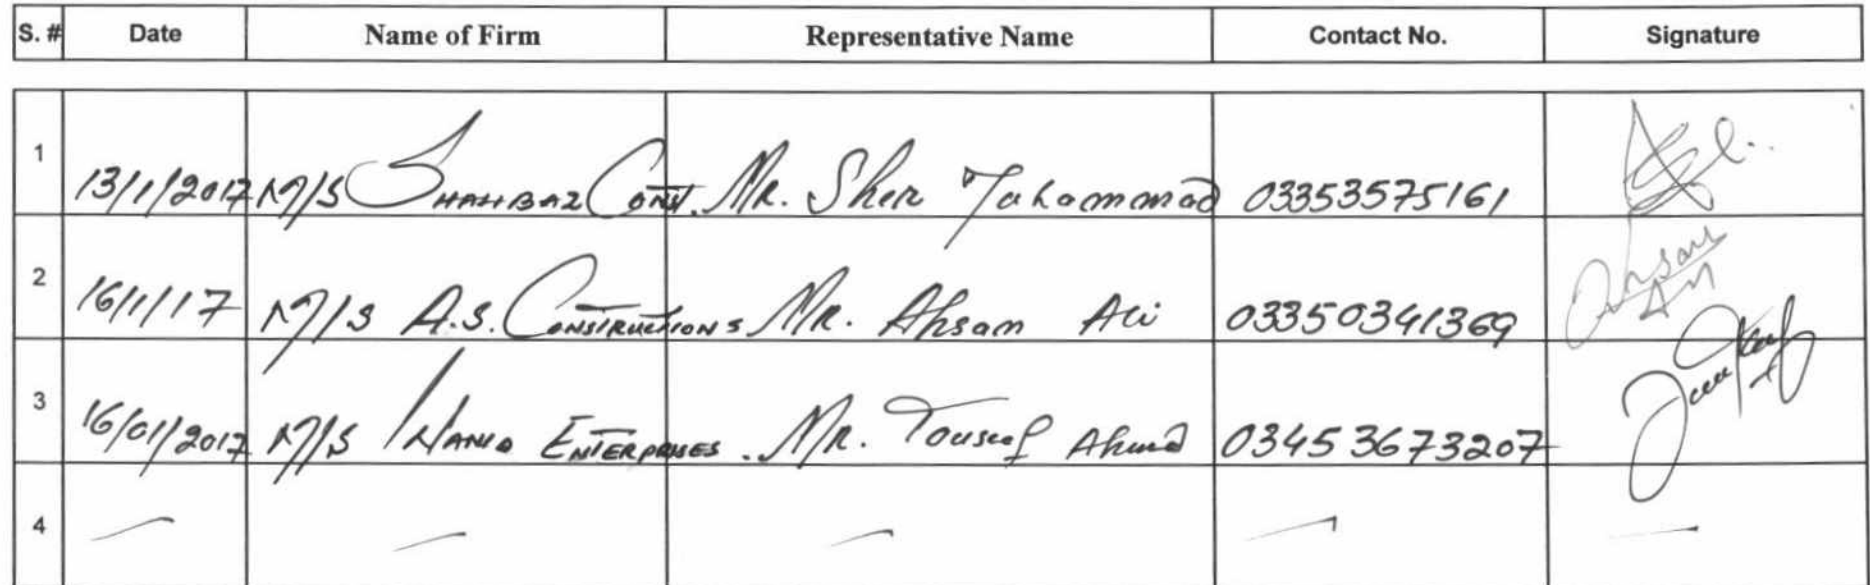 S. # Date Name of Firm Representative Name Contact No. Signature
1 13/1/2017 M/S SHAHBAZ CONST. Mr. Sher Muhammad 03353575161
2 16/1/17 M/S A.S. CONSTRUCTIONS Mr. Ahsan Ali 03350341369 Ahsan
3 16/01/2017 M/S ENTERPRISES. Mr. Touseef Ahmed 03453673207
4 — — — — —